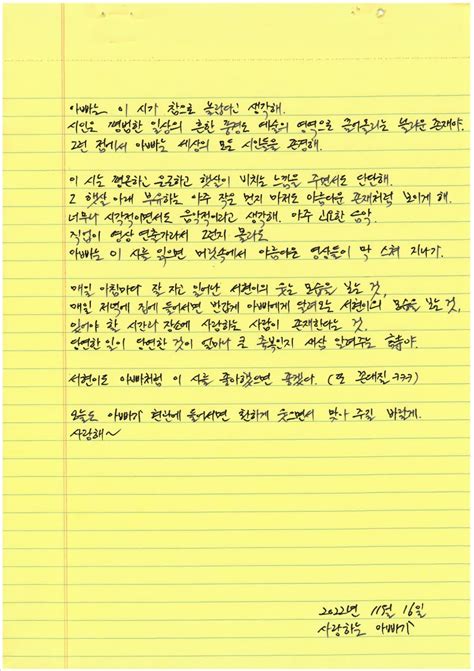 아빠는 이 시가 참으로 놀랍다고 생각해.
시인은 평범한 일상의 흔한 풍경도 예술의 영역으로 끌어올리는 놀라운 존재야.
그런 점에서 아빠는 세상의 모든 시인들을 존경해.
이 시는 평온하고 온유하고 햇살이 비치는 느낌을 주면서도 단단해.
그 햇살 아래 부유하는 아주 작은 먼지 마저도 아름다운 존재처럼 보이게 해.
너무나 시각적이면서도 음악적이라고 생각해. 아주 고요한 음악.
직업이 영상 연출가라서 그런지 몰라도
아빠는 이 시를 읽으면 머릿속에서 아름다운 영상들이 막 스쳐 지나가.
매일 아침마다 잘 자고 일어난 서현이의 웃는 모습을 보는 것,
매일 저녁에 집에 들어서면 반갑게 아빠에게 달려오는 서현이의 모습을 보는 것,
있어야 할 시간과 장소에 사랑하는 사람이 존재한다는 것,
당연한 일이 당연한 것이 얼마나 큰 축복인지 새삼 알려주는
서현이도 아빠처럼 이 시를 좋아했으면 좋겠다. (또 꼰대질 ㅋㅋㅋ)
오늘도 아빠가 현관에 들어서면 환하게 웃으면서 맞아 주길 바랄게.
사랑해~
2022년 11월 16일
사랑하는 아빠가